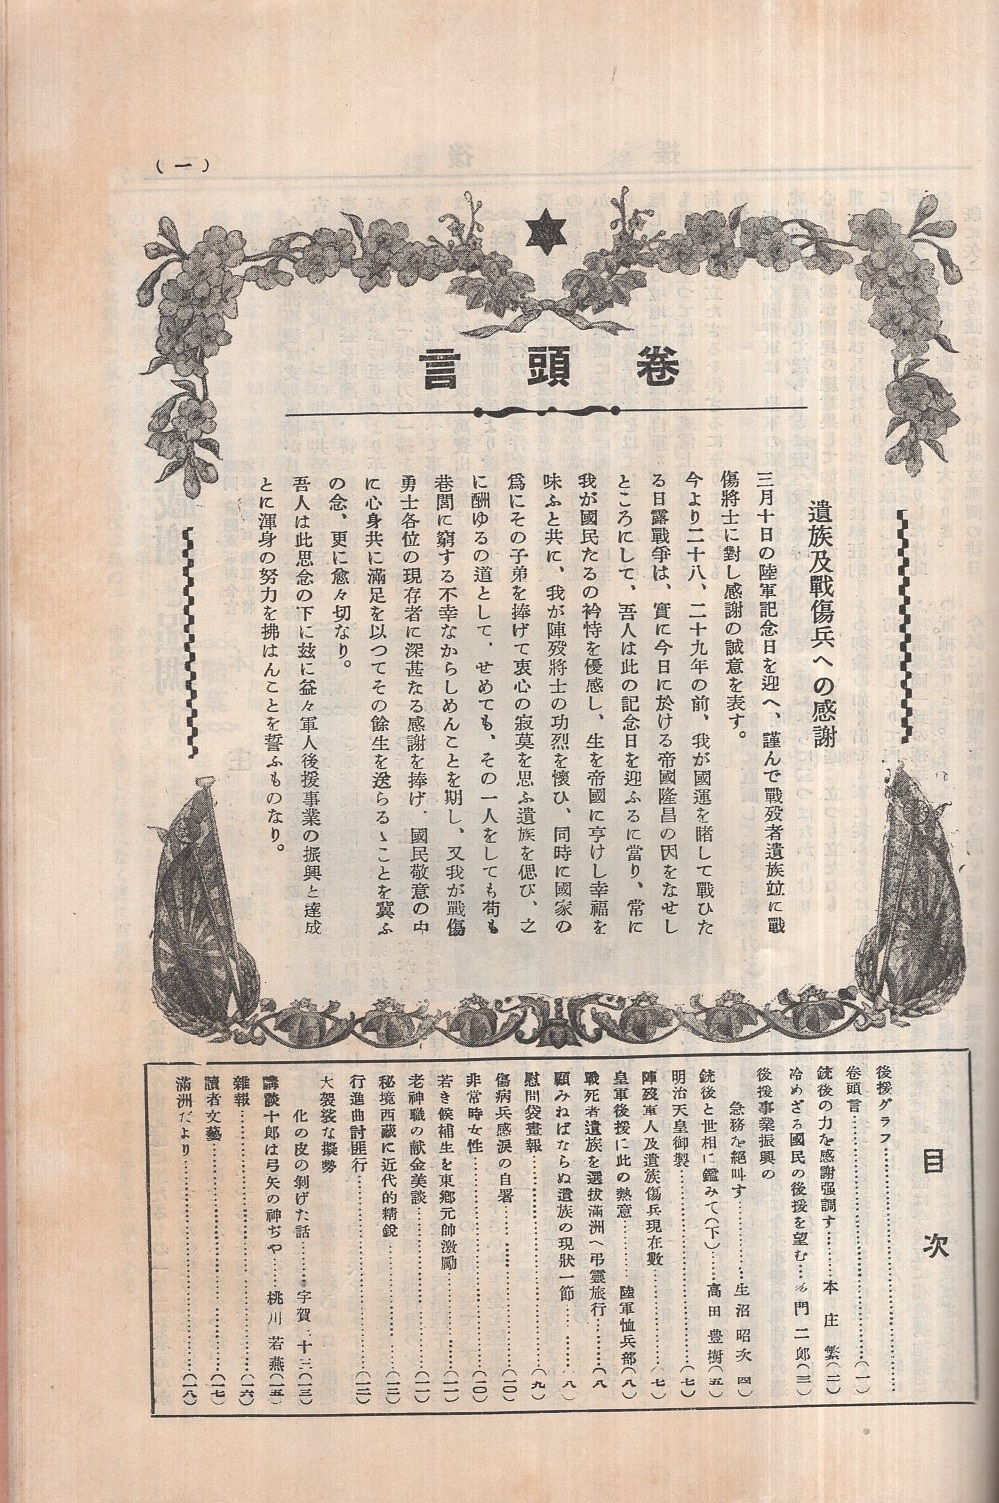 (一)
卷頭言
遺族及戰傷兵への感謝
三月十日の陸軍記念日を迎へ、謹んで戰歿者遺族竝に戰
傷將士に對し感謝の誠意を表す。
今より二十八、二十九年の前、我が國運を賭して戰ひた
る日露戰爭は、實に今日に於ける帝國隆昌の因をなせし
ところにして、吾人は此の記念日を迎ふるに當り、常に
我が國民たるの衿恃を優感し、生を帝國に亨けし幸福を
味ふと共に、我が陣歿將士の功烈を懷ひ、同時に國家の
爲にその子弟を捧げて衷心の寂莫を思ふ遺族を偲び、之
に酬ゆるの道として、せめても、その一人をしても苟も
巷間に窮する不幸なからしめんことを期し、又我が戰傷
勇士各位の現存者に深甚なる感謝を捧げ、國民敬意の中
に心身共に滿足を以つてその餘生を送らるゝことを冀ふ
の念、更に愈々切なり。
吾人は此思念の下に玆に益々軍人後援事業の振興と達成
とに渾身の努力を拂はんことを誓ふものなり。
目次
後援グラフ……………
卷頭言……………(一)
銃後の力を感謝强調す……本庄繁(二)
冷めざる國民の後援を望む…門二郞(三)
後援事業振興の
急務を絕叫す……………生沼昭次(四)
銃後と世相に鑑みて(下)……高田豊樹(五)
明治天皇御製……………(七)
陣歿軍人及遺族傷兵現在數……七
皇軍後援に此の熱意……陸軍恤兵部(八)
戰死者遺族を選拔滿洲へ弔靈旅行……(八
顧みねばならぬ遺族の現狀一節……八
慰問袋畫報……………(九)
傷病兵感淚の自署……………(一〇)
非常時女性……………(一〇)
若き候補生を東鄕元帥激勵……………(一一)
老神職の献金美談……………(一一)
秘境西藏に近代的精銳……………(一二)
行進曲討匪行……………(一二)
大袈裟な擬勢
化の皮の剝げた話……宇賀二十三(一三)
講談十郎は弓矢の神ぢや……桃川若燕(一五)
雜報……………(一六)
讀者文藝……………(一七)
滿洲だより……………(一八)